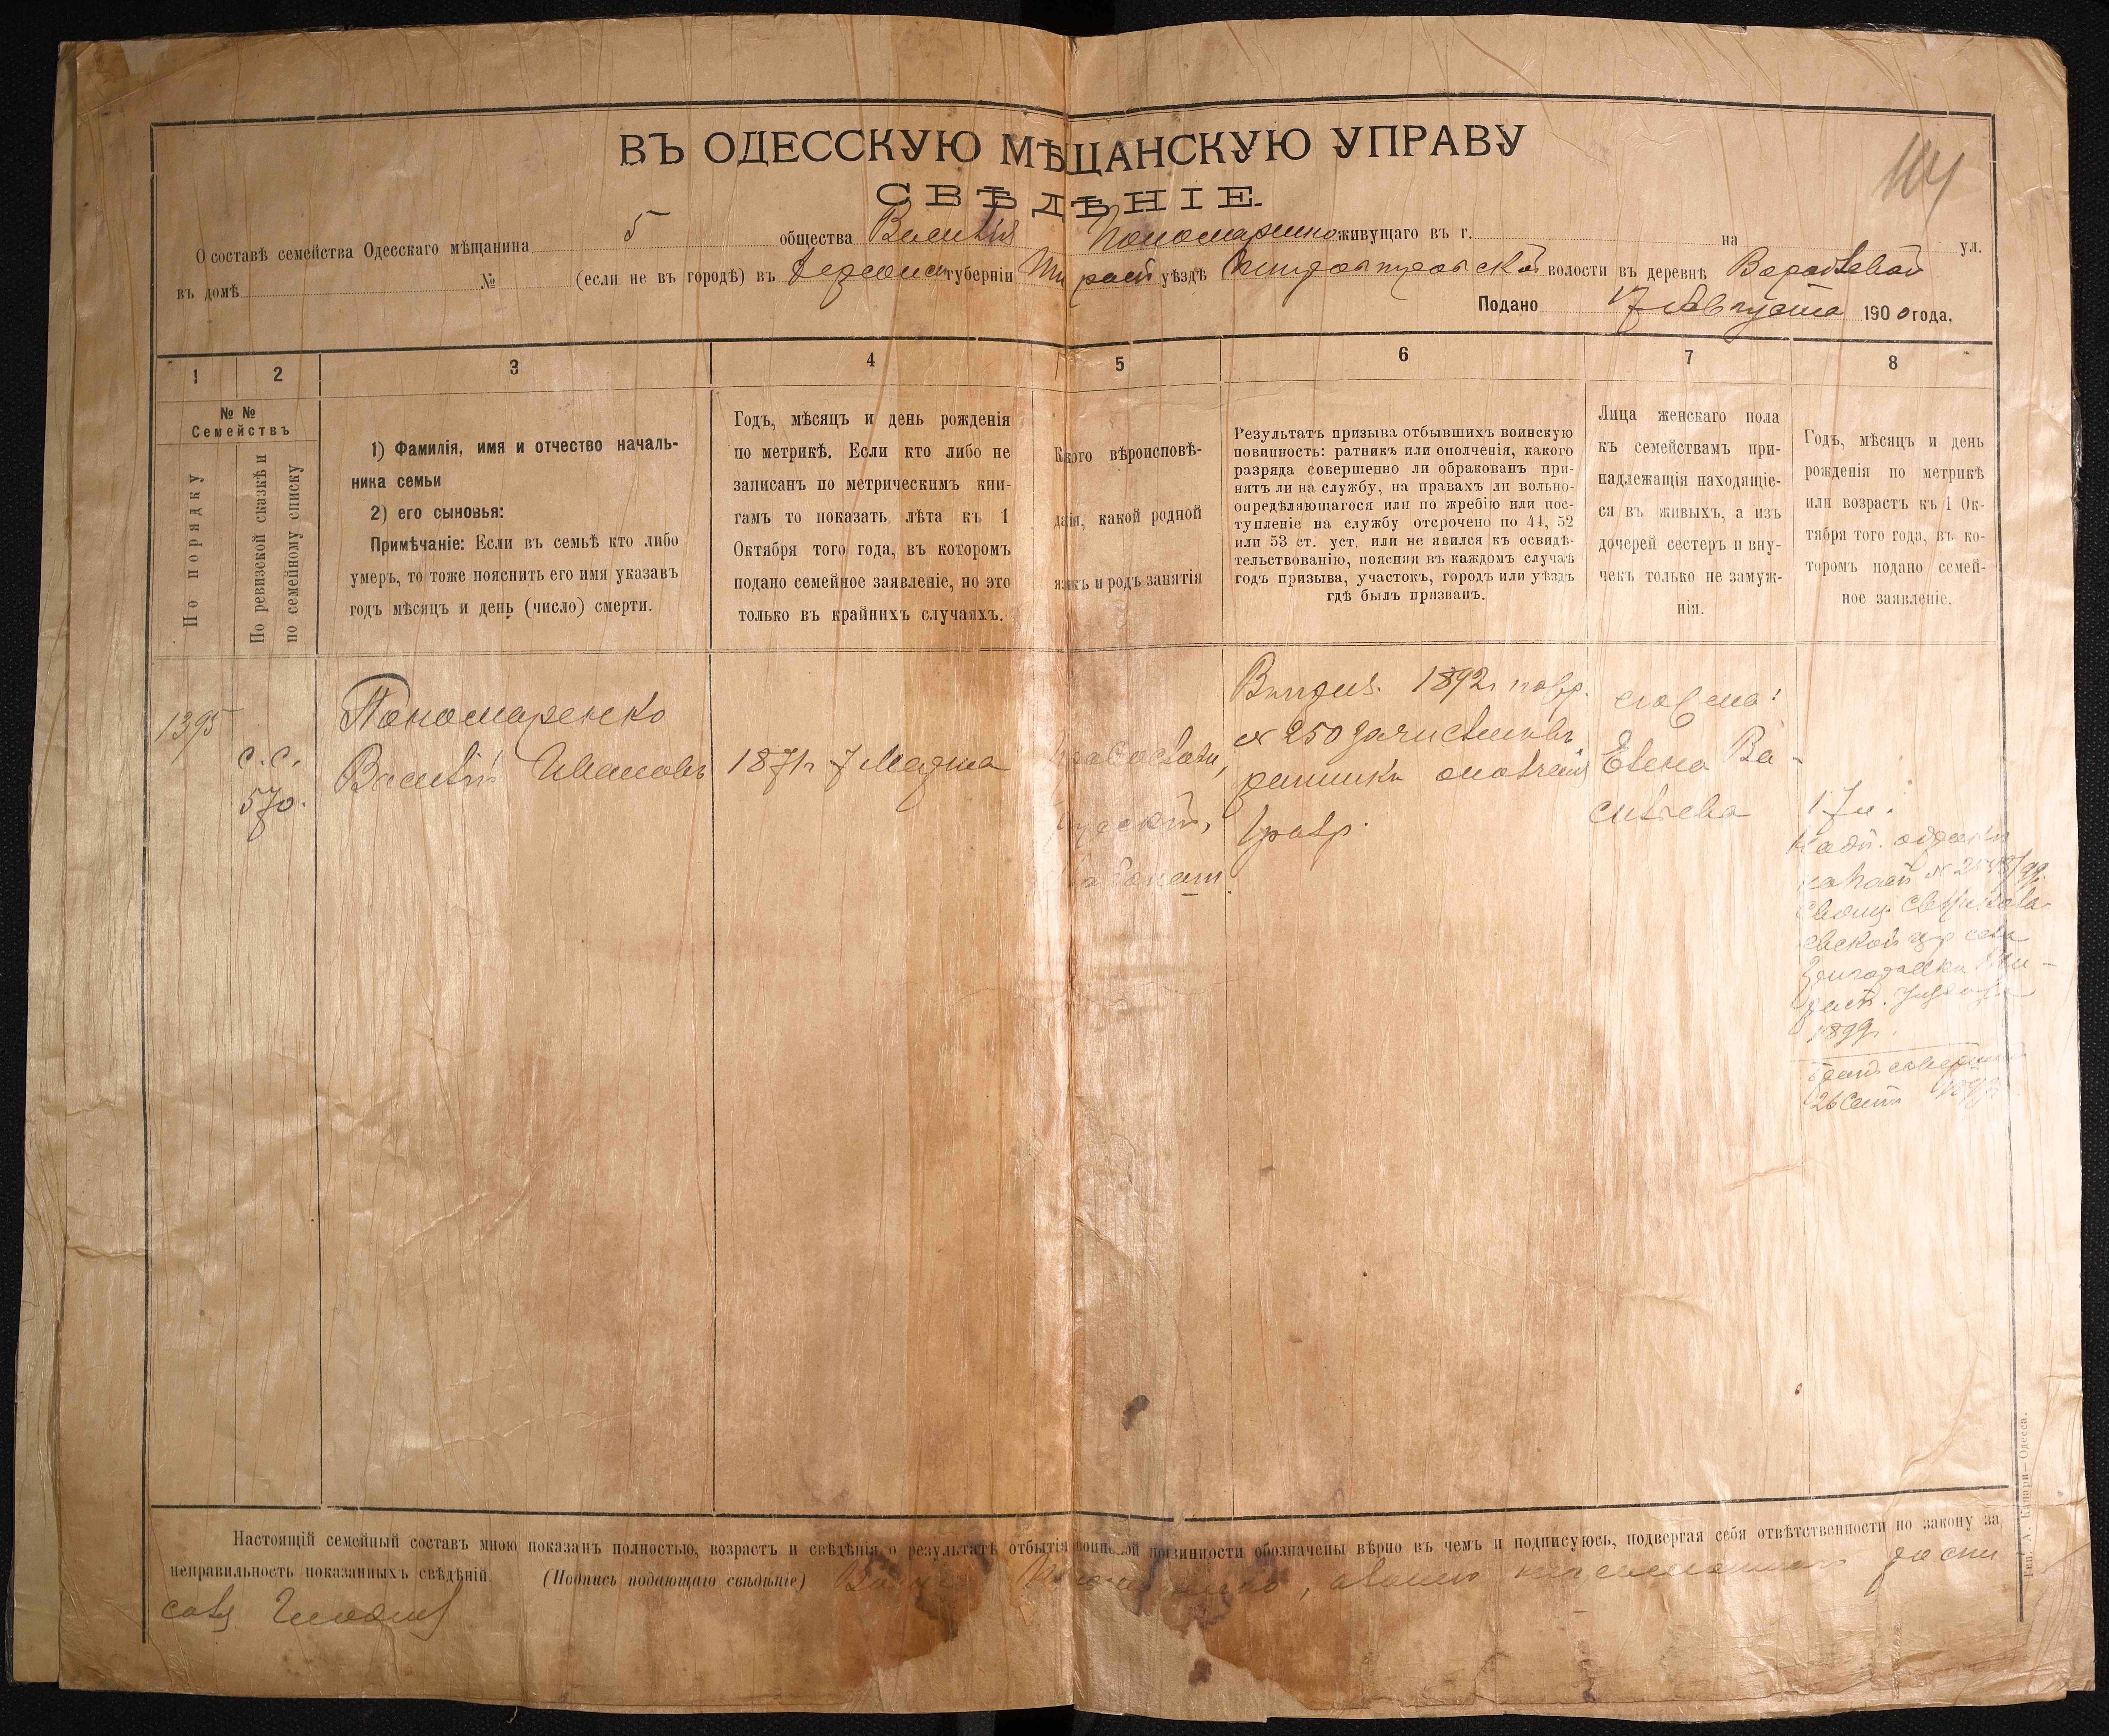 ВЪ ОДЕССКУЮ МѢЩАНСКУЮ УПРАВУ
СВѢДѢНІЕ.
О составѣ семейства Одесскаго мѣщанина 5 общества Василія Пономаренко живущаго въ г. на ул.
въ домѣ № (если не въ городѣ) въ Херсонск губерніи Тирасп уѣздѣ волости въ деревнѣ
Подано 17 Августа 1900 года.
104
1 2 3 4 5 6 7 8
№ №
Семействъ
По порядку
По ревизской сказкѣ и
по семейному списку
1) Фамилія, имя и отчество началь-
ника семьи
2) его сыновья:
Примѣчаніе: Если въ семьѣ кто либо
умеръ, то тоже пояснить его имя указавъ
годъ мѣсяцъ и день (число) смерти.
Годъ, мѣсяцъ и день рожденія
по метрикѣ. Если кто либо не
записанъ по метрическимъ кни-
гамъ то показать лѣта къ 1
Октября того года, въ которомъ
подано семейное заявленіе, но это
только въ крайнихъ случаяхъ.
Какого вѣроисповѣ-
данія, какой родной
языкъ и родъ занятія
Результатъ призыва отбывшихъ воинскую
повинность: ратникъ или ополченія, какого
разряда совершенно ли обракованъ при-
нятъ ли на службу, на правахъ ли вольно-
опредѣляющагося или по жребію или пос-
тупленіе на службу отсрочено по 44, 52
или 53 ст. уст. или не явился къ освидѣ-
тельствованію, поясняя въ каждомъ случаѣ
годъ призыва, участокъ, городъ или уѣздъ
гдѣ былъ призванъ.
Лица женскаго пола
къ семействамъ при-
надлежащія находящіе-
ся въ живыхъ, а изъ
дочерей сестеръ и вну-
чекъ только не замуж-
нія.
Годъ, мѣсяцъ и день
рожденія по метрикѣ
или возрастъ къ 1 Ок-
тября того года, въ ко-
торомъ подано семей-
ное заявленіе.
1395
с.с.
570.
Пономаренко
Василій Ивановъ
1871 г 7 Марта
Православн,
Русскій,
1892 г
№ 250 зачисленъ
ратникъ ополченія
1 разр.
жена:
Елена Ва-
сильева
17 л.
1899 г.
26 Сент 1899 г.
Настоящій семейный составъ мною показанъ полностью, возрастъ и свѣдѣнія о результатѣ отбытія воинской повинности обозначены вѣрно въ чемъ и подписуюсь, подвергая себя отвѣтственности по закону за
неправильность показанныхъ свѣдѣній. (Подпись подающаго свѣдѣніе)